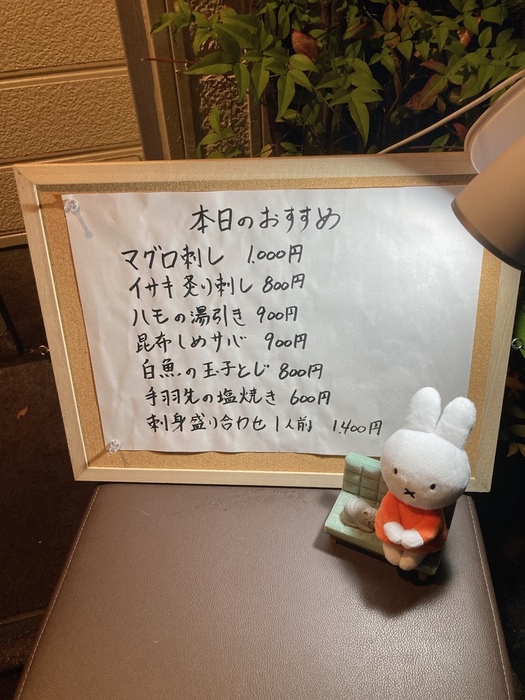 本日のおすすめ
マグロ刺し 1,000円
イサキ炙り刺し 800円
ハモの湯引き 900円
昆布しめサバ 900円
白魚の玉子とじ 800円
手羽先の塩焼き 600円
刺身盛り合わせ 1人前 1,400円